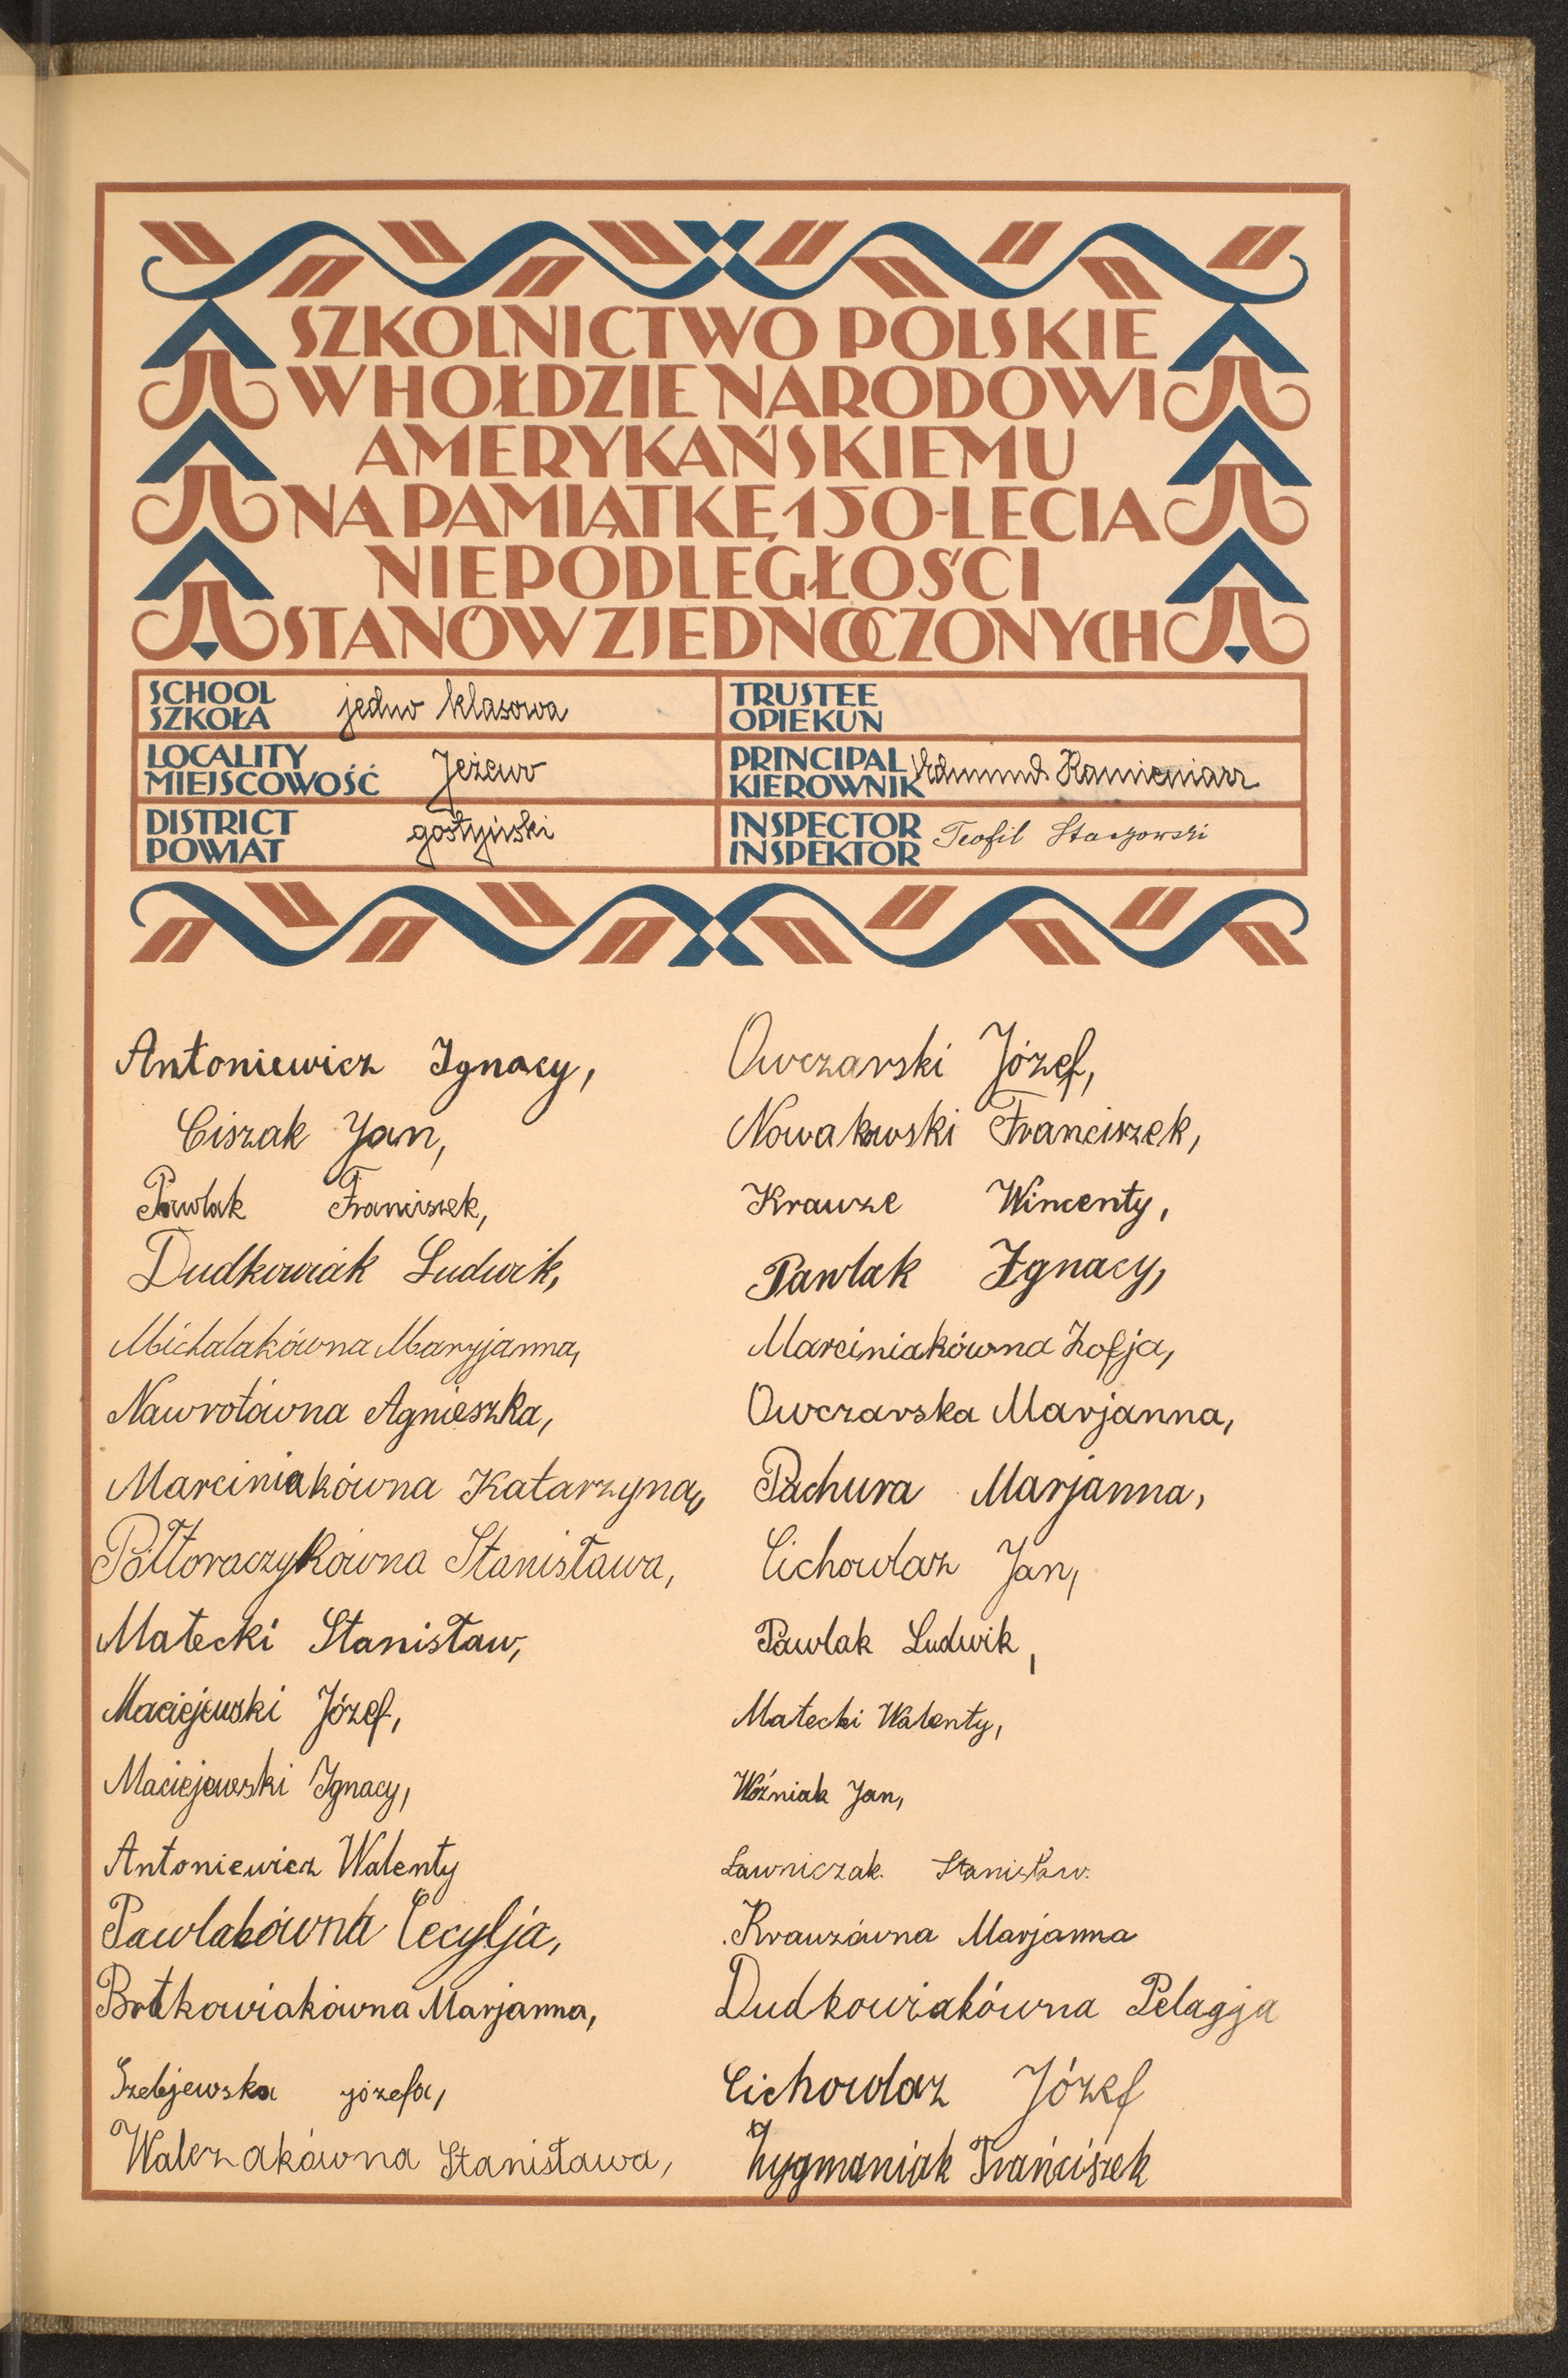 SZKOLNICTWO POLSKIE
W HOŁDZIE NARODOWI
AMERYKAŃSKIEMU
NA PAMIĄTKĘ 150-LECIA
NIEPODLEGŁOŚCI
STANÓW ZJEDNOCZONYCH
SCHOOL
SZKOŁA
jedno klasowa
TRUSTEE
OPIEKUN
LOCALITY
MIEJSCOWOŚĆ
Jeżewo
PRINCIPAL
KIEROWNIK
Edmund Kamieniarz
DISTRICT
POWIAT
gostyński
INSPECTOR
INSPEKTOR
Teofil
Antoniewicz Ignacy,
Ciszak Jan,
Pawlak Franciszek,
Dudkowiak Ludwik,
Michalakówna Maryjanna,
Nawrotówna Agnieszka,
Marciniakówna Katarzyna,
Półtoraczykówna Stanisława,
Małecki Stanisław,
Maciejewski Józef,
Maciejewski Ignacy,
Antoniewicz Walenty
Pawlakówna Cecylja,
Marjanna,
Józefa,
Walczakówna Stanisława,
Owczarski Józef,
Nowakowski Franciszek,
Krauze Wincenty,
Pawlak Ignacy,
Marciniakówna Zofja,
Owczarska Marjanna,
Pachura Marjanna,
Cichowlaz Jan,
Pawlak Ludwik,
Małecki Walenty,
Woźniak Jan,
Ławniczak. Stanisław.
Krauzówna Marjanna
Dudkowiakówna Pelagja
Cichowlaz Józef
Zygmaniak Franciszek